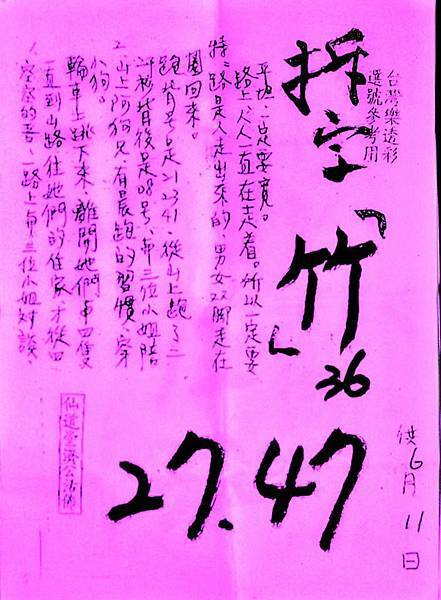 台灣樂透彩
選號參考用
拆字「竹」36
27.47
供6月11日
一路上 三位小姐对談、
一直到山路住她們的住家才從四
輪車上跳下來離開她們 四隻
小狗。
2.山上阿狗兄有晨跑的習慣、穿
汗衫背後是08号、 三位小姐陪
跑背号是21.23.41.從山上跑了三
圈回來。
路是人走出來的、男女双脚走在
路上人人一直在走着。所以一定要
平坦一定要寬。
仙道臺濟公活佛